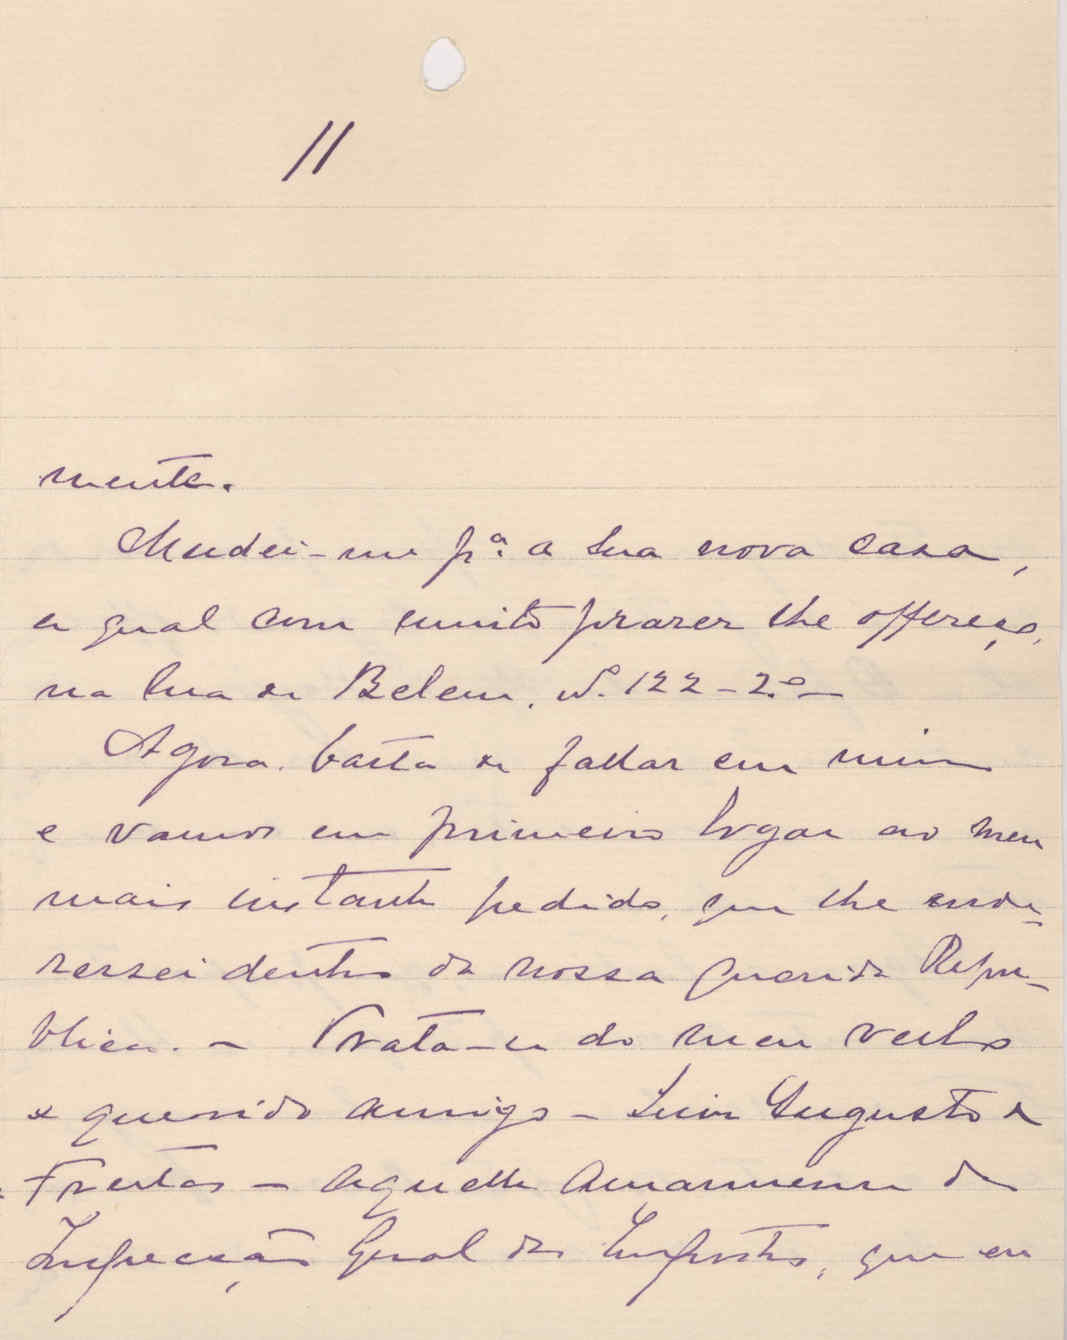 11
mente.
Mudei-me pª. a sua nova casa,
a qual com muito prazer lhe offereço,
na Rua de Belem, N. 122-2º-
Agora, basta de fallar em mim
e vamos em primeiro logar ao meu
mais instante pedido, que lhe ende-
ressei dentro da nossa querida Repu-
blica. - Trata-se do meu velho
e querido amigo - Luiz Augusto de
Freitas - aquelle Amanuense da
Inspecção Geral dos Impostos, que eu